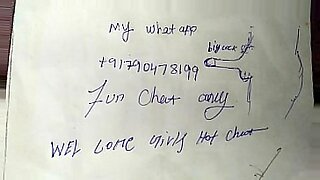 My whatapp
big cock
+91790478199
Fun Chat only
WEL COME Girls Hot Chat